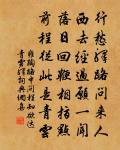 行愁驛路問來人
西去經過願一聞
落日回鞭相指點
前程從此是青雲
雍陶路中問程知欲达
青雲驛詞典網